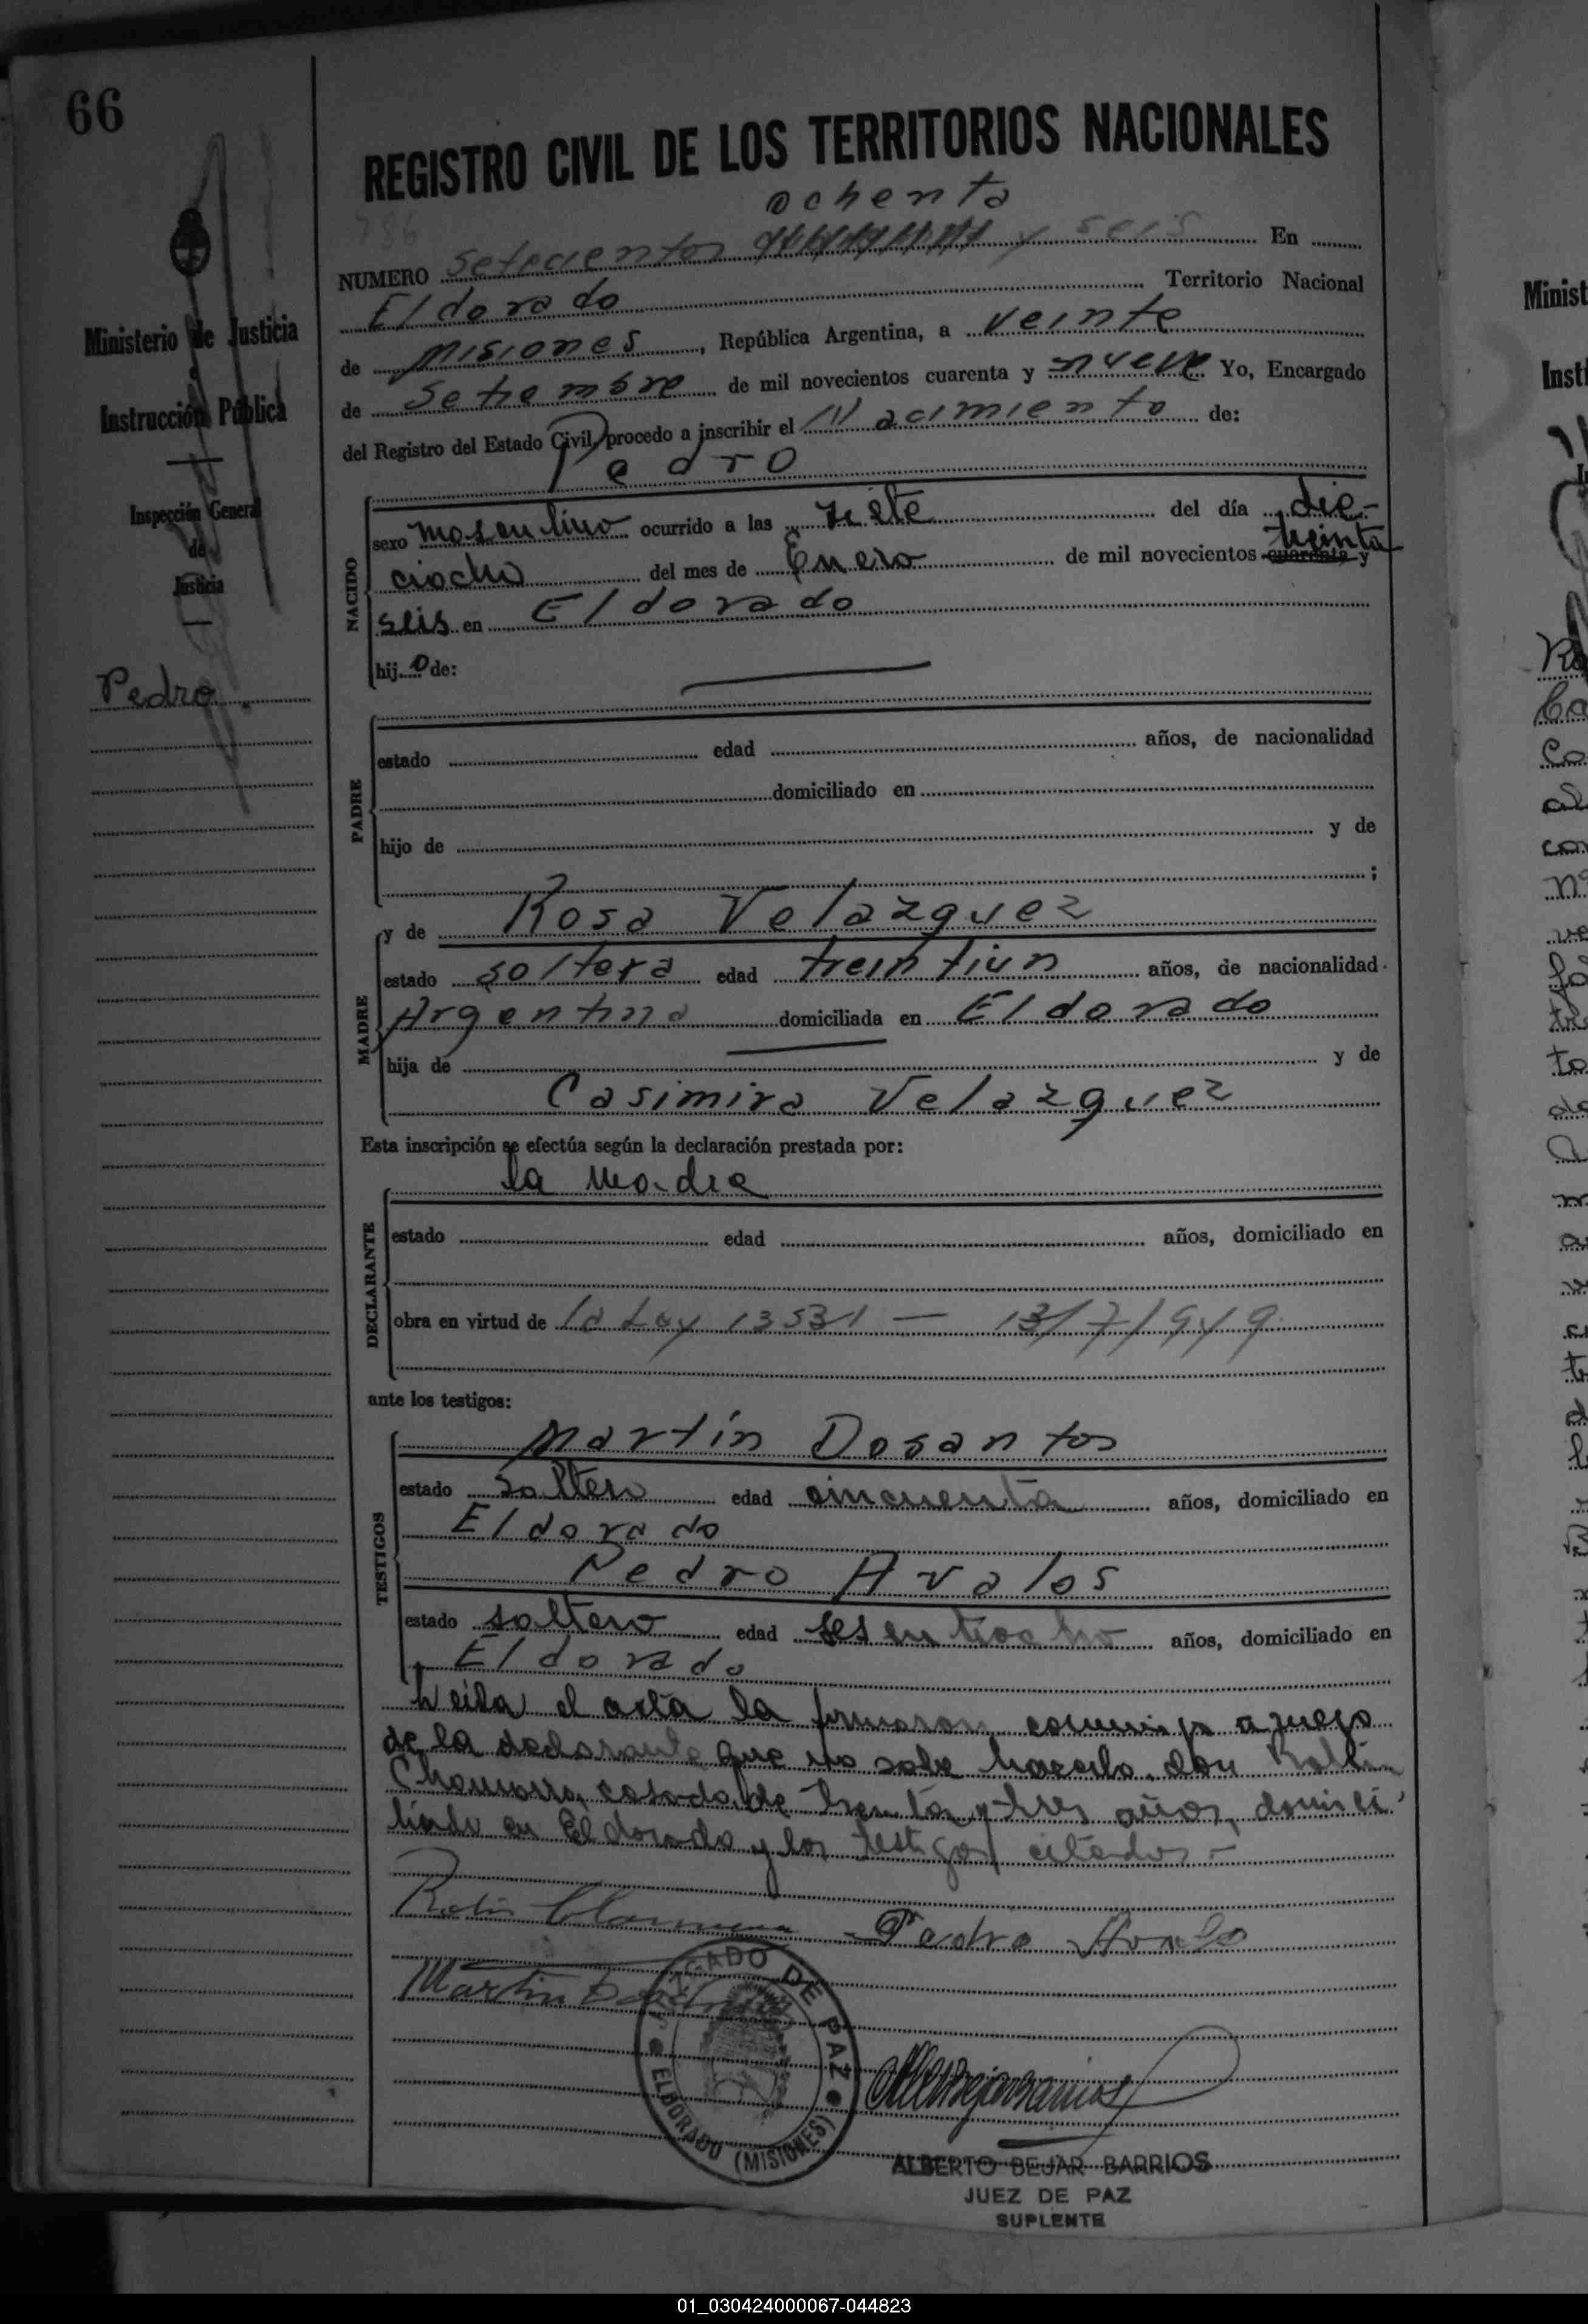 66
REGISTRO CIVIL DE LOS TERRITORIOS NACIONALES
ochenta
786
NUMERO setecientos y seis En
Eldorado Territorio Nacional
de Misiones, República Argentina, a veinte
de Setiembre de mil novecientos cuarenta y nueve Yo, Encargado
del Registro del Estado Civil, procedo a inscribir el Nacimiento de:
Pedro
sexo masculino ocurrido a las siete del día die-
treinta
ciocho del mes de Enero de mil novecientos cuarenta y
seis en Eldorado
hijo de:
NACIDO
Ministerio de Justicia
Instrucción Pública
Inspección General
de
Justicia
Pedro
estado edad años, de nacionalidad
domiciliado en
hijo de y de
;
PADRE
y de Rosa Velazquez
estado soltera edad treintiun años, de nacionalidad
Argentina domiciliada en Eldorado
hija de y de
Casimira Velazquez
MADRE
Esta inscripción se efectúa según la declaración prestada por:
la madre
estado edad años, domiciliado en
obra en virtud de la Ley 13531 — 13/7/949
DECLARANTE
ante los testigos:
Martín Dosantos
estado soltero edad cincuenta años, domiciliado en
Eldorado
Pedro Avalos
estado soltero edad sesentiocho años, domiciliado en
Eldorado
TESTIGOS
Leida el acta la firmaron conmigo a ruego
de la declarante que no sabe hacerlo, don
casado, de treinta y tres años, domici
liado en Eldorado y los testigos citados.-
Pedro Avalo
Martin
JUZGADO DE PAZ
ELDORADO (MISIONES)
ALBERTO BEJAR BARRIOS
JUEZ DE PAZ
SUPLENTE
Minist
Inst
01_030424000067-044823